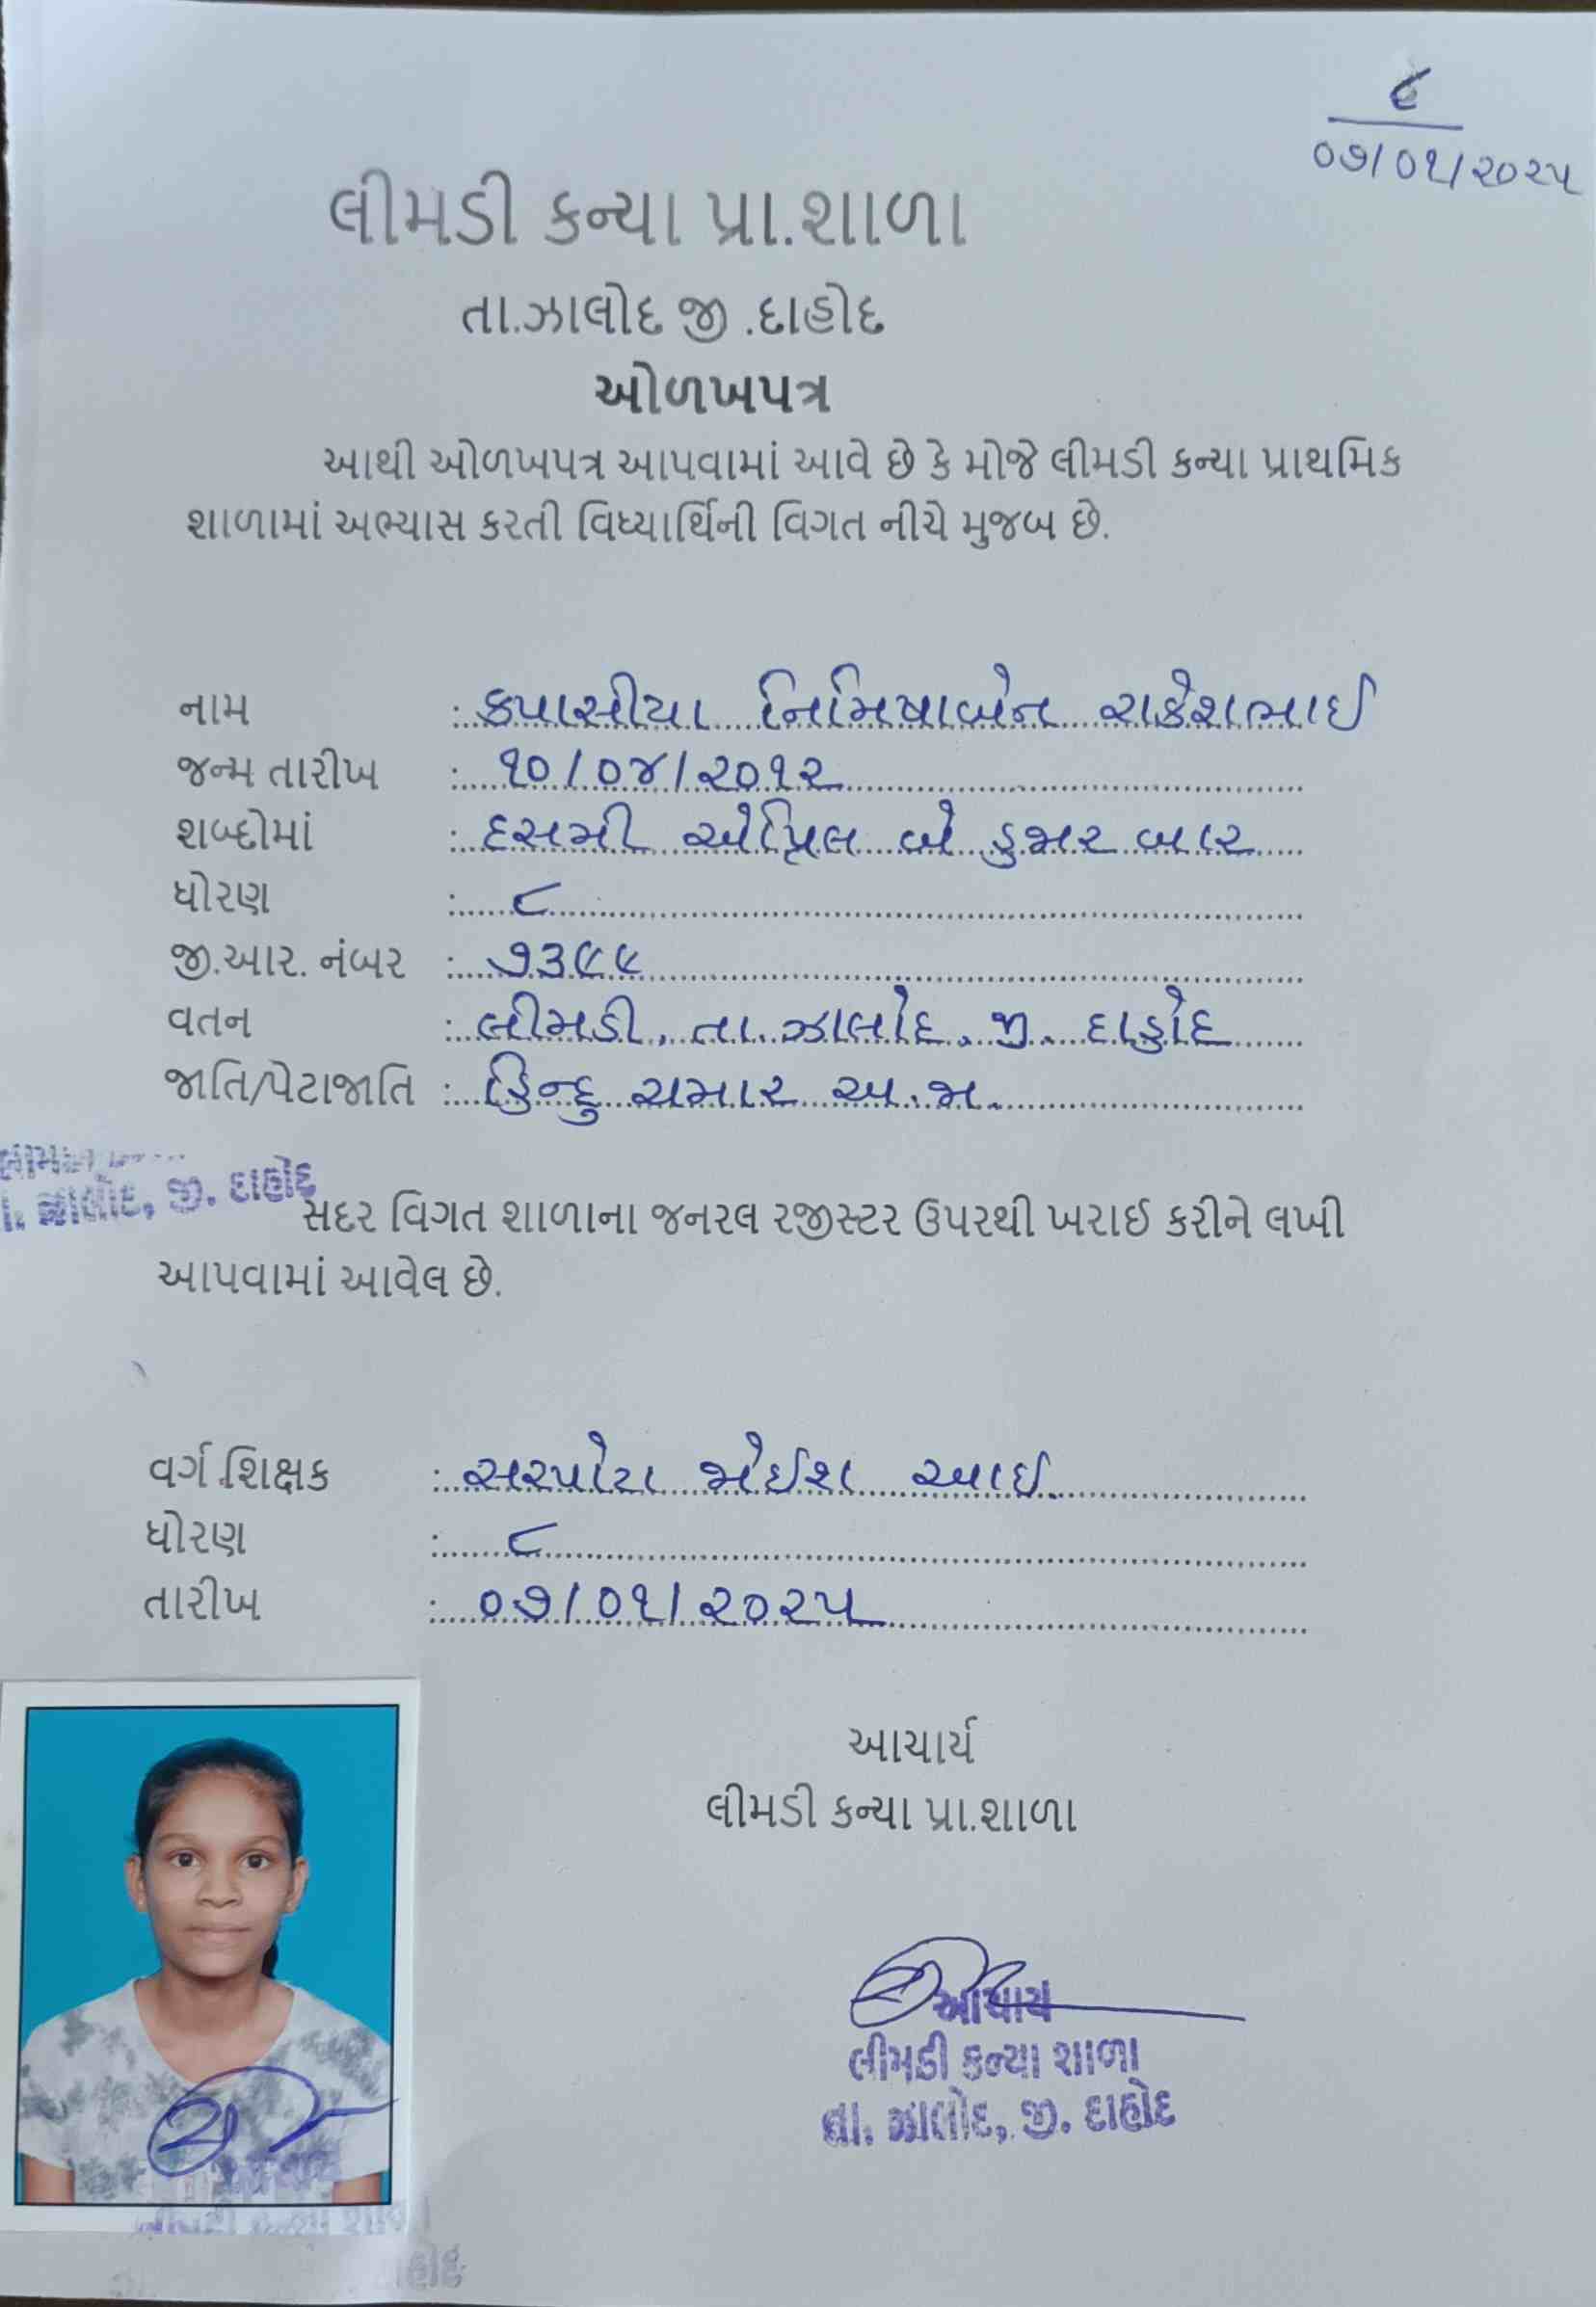 ૯
૦૭/૦૧/૨૦૨૫
લીમડી કન્યા પ્રા.શાળા
તા.ઝાલોદ જી .દાહોદ
ઓળખપત્ર
આથી ઓળખપત્ર આપવામાં આવે છે કે મોજે લીમડી કન્યા પ્રાથમિક
શાળામાં અભ્યાસ કરતી વિધ્યાર્થિની વિગત નીચે મુજબ છે.
નામ : કપાસીયા નિમિષાબેન રાકેશભાઈ
જન્મ તારીખ : ૧૦/૦૪/૨૦૧૨
શબ્દોમાં : દસમી એપ્રિલ બે હજાર બાર
ધોરણ : ૮
જી.આર. નંબર : ૭૩૯૯
વતન : લીમડી, તા. ઝાલોદ. જી. દાહોદ
જાતિ/પેટાજાતિ : હિન્દુ ચમાર અ.જા.
ઝાલોદ, જી. દાહોદ
સદર વિગત શાળાના જનરલ રજીસ્ટર ઉપરથી ખરાઈ કરીને લખી
આપવામાં આવેલ છે.
વર્ગ શિક્ષક : સરપોટા જોઈશ આઈ.
ધોરણ : ૮
તારીખ : ૦૭/૦૧/૨૦૨૫
આચાર્ય
લીમડી કન્યા પ્રા.શાળા
આચાર્ય
લીમડી કન્યા શાળા
તા. ઝાલોદ, જી. દાહોદ